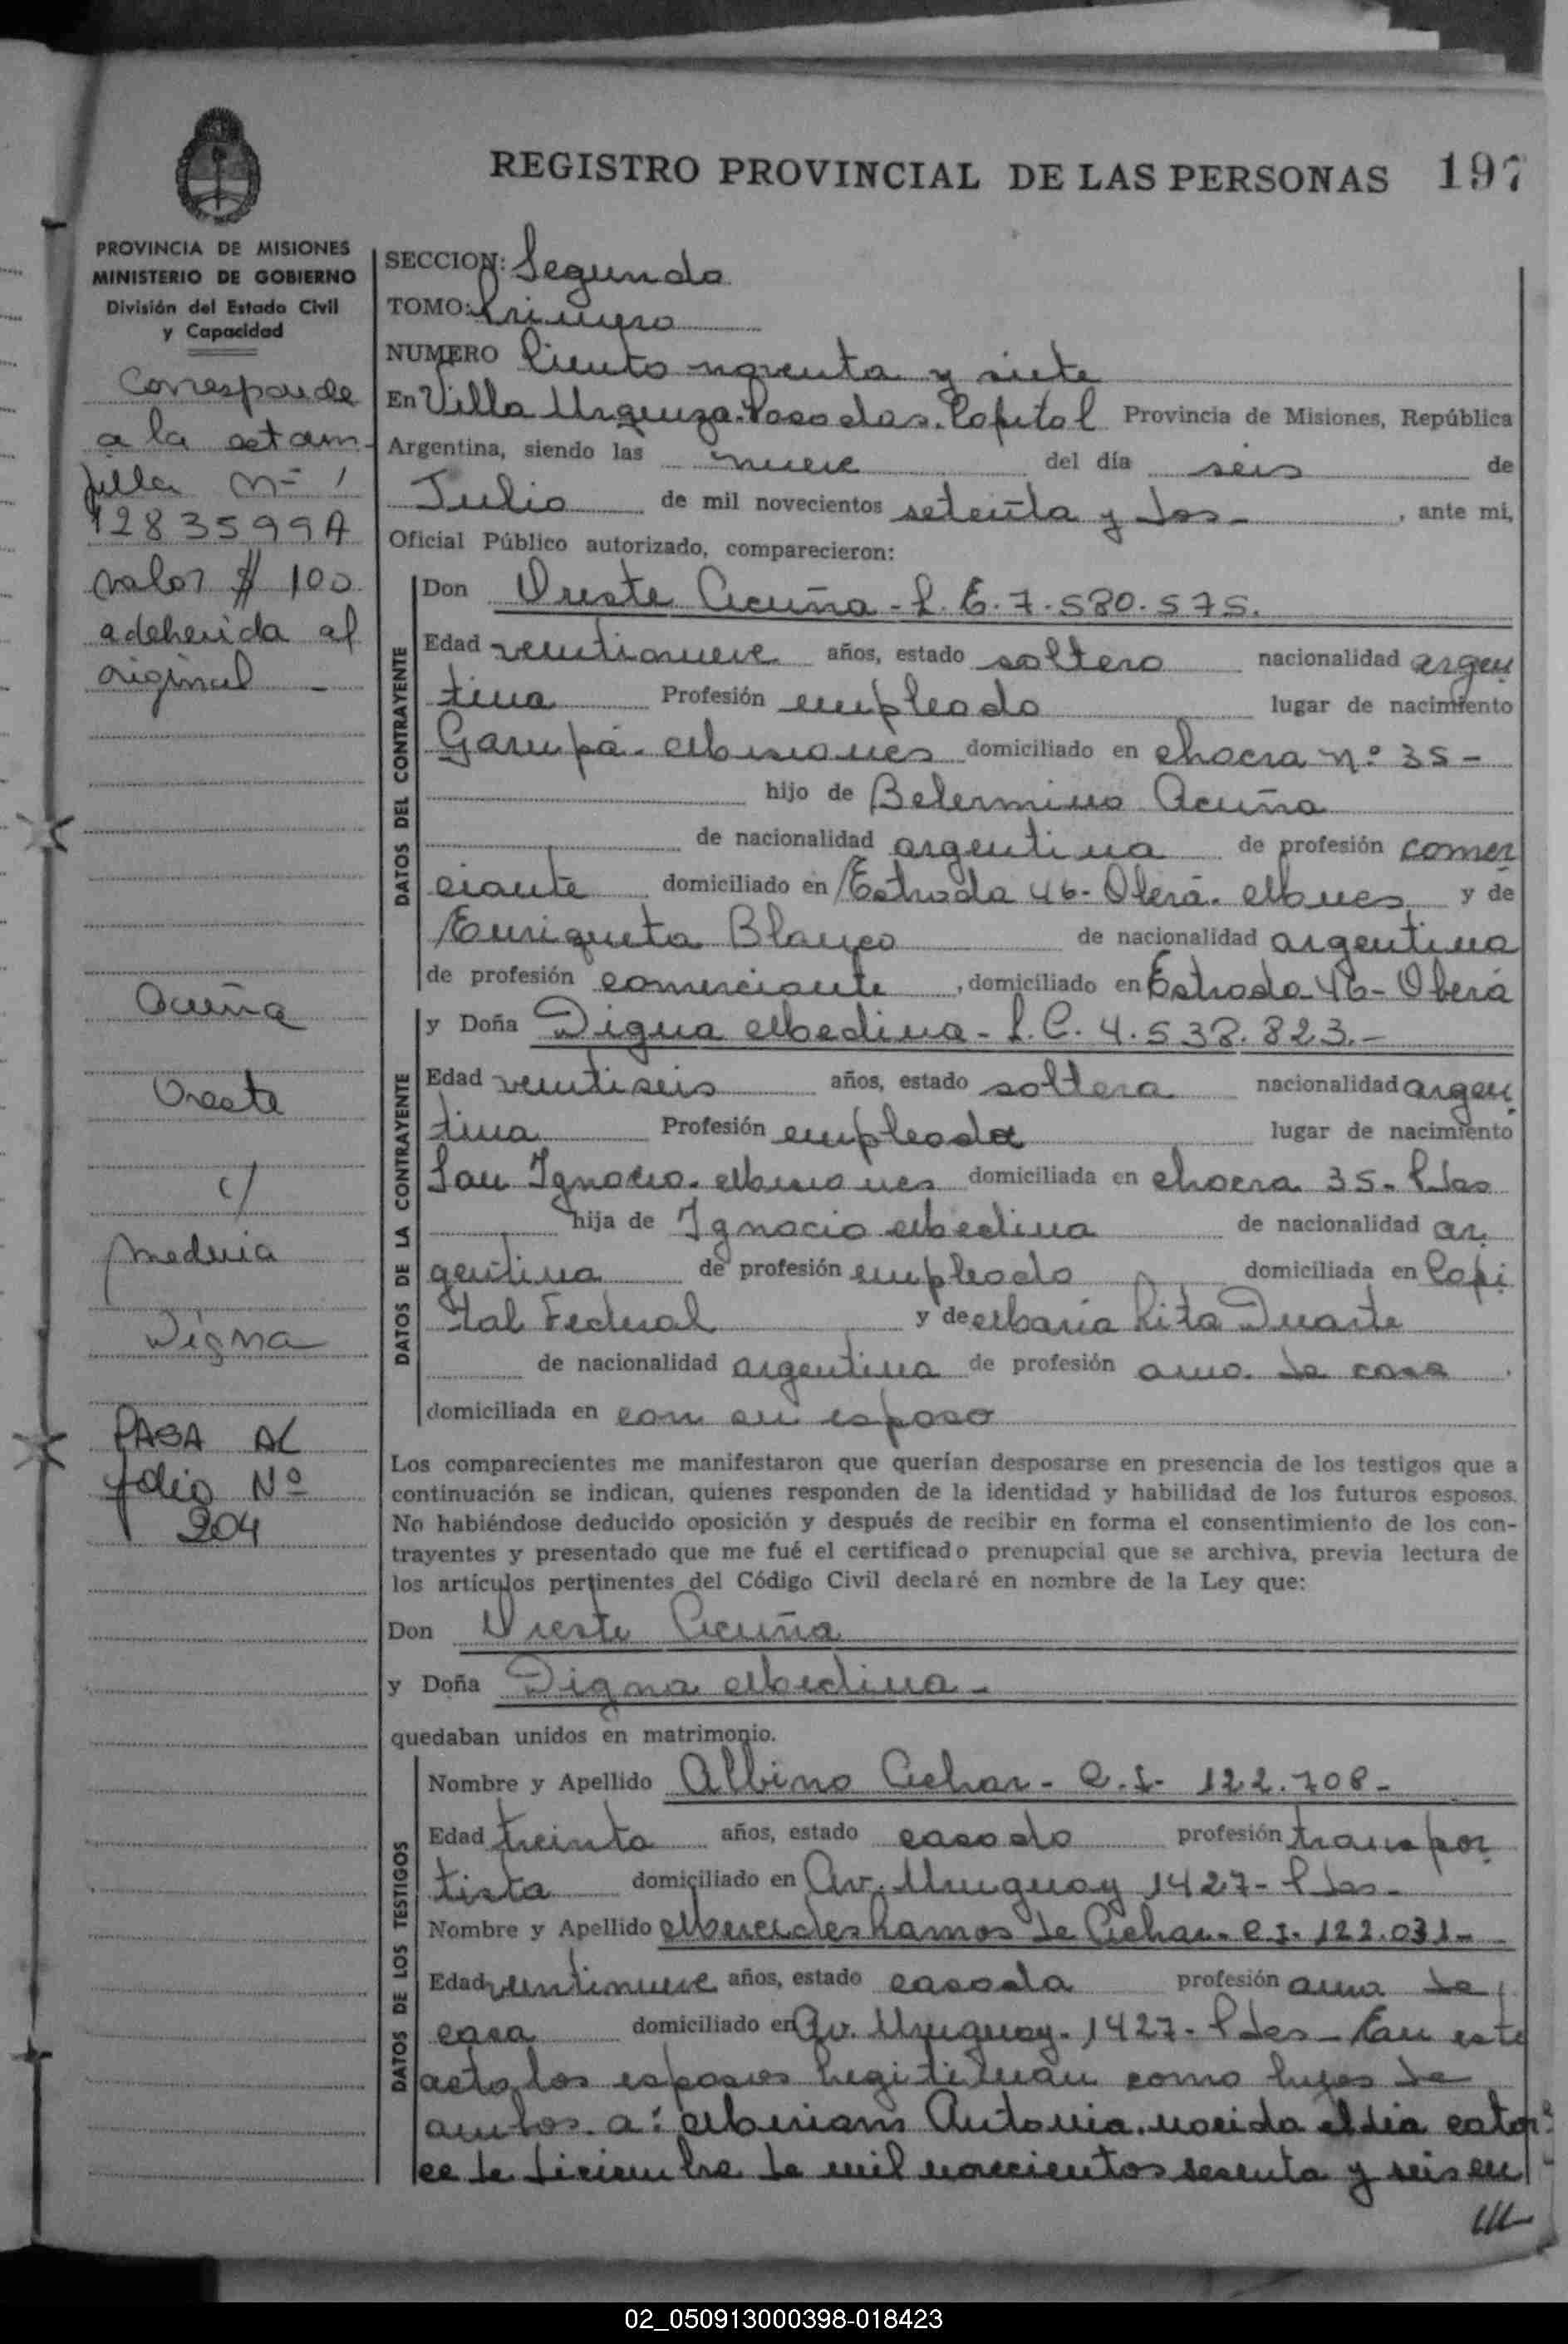 REGISTRO PROVINCIAL DE LAS PERSONAS 197
PROVINCIA DE MISIONES
MINISTERIO DE GOBIERNO
División del Estado Civil
y Capacidad
Corresponde
a la estam-
pilla Nº
1283599A
valor $ 100
adeherida al
original -
Acuña
Oreste
c/
Medina
Digna
PASA AL
folio Nº
204
SECCION: Segunda
TOMO: Primero
NUMERO Ciento noventa y siete
En Villa Urquiza. Posadas. Capital Provincia de Misiones, República
Argentina, siendo las nueve del día seis de
Julio de mil novecientos setenta y dos- , ante mi,
Oficial Público autorizado, comparecieron:
DATOS DEL CONTRAYENTE
Don Oreste Acuña - L.E. 7.580.575.
Edad veintinueve años, estado soltero nacionalidad argen
tina Profesión empleado lugar de nacimiento
Garupá. Misiones domiciliado en chacra nº 35-
hijo de Belermino Acuña
de nacionalidad argentina de profesión comer
ciante domiciliado en Estrada 46- Oberá. Mnes y de
Enriqueta Blanco de nacionalidad argentina
de profesión comerciante , domiciliado en Estrada 46- Oberá
DATOS DE LA CONTRAYENTE
y Doña Digna Medina - L.C. 4.538.823.-
Edad veintiseis años, estado soltera nacionalidad argen
tina Profesión empleada lugar de nacimiento
San Ignacio. Misiones domiciliada en chacra 35. Pdas
hija de Ignacio Medina de nacionalidad ar
gentina de profesión empleado domiciliada en Capi
tal Federal y de María Rita Duarte
de nacionalidad argentina de profesión ama de casa
domiciliada en con su esposo
Los comparecientes me manifestaron que querían desposarse en presencia de los testigos que a
continuación se indican, quienes responden de la identidad y habilidad de los futuros esposos.
No habiéndose deducido oposición y después de recibir en forma el consentimiento de los con-
trayentes y presentado que me fué el certificado prenupcial que se archiva, previa lectura de
los artículos pertinentes del Código Civil declaré en nombre de la Ley que:
Don Oreste Acuña
y Doña Digna Medina -
quedaban unidos en matrimonio.
DATOS DE LOS TESTIGOS
Nombre y Apellido Albino Achar - C.I. 122.708-
Edad treinta años, estado casado profesión transpor
tista domiciliado en Av. Uruguay 1427- Pdas-
Nombre y Apellido Mercedes Ramos de Achar- C.I. 122.031-
Edad veintinueve años, estado casada profesión ama de
casa domiciliado en Av. Uruguay- 1427- Pdas- En este
acto, los esposos legitiman como hijos de
ambos. a: Miriam Antonia, nacida el día cator
ce de diciembre de mil novecientos sesenta y seis en
///
02_050913000398-018423